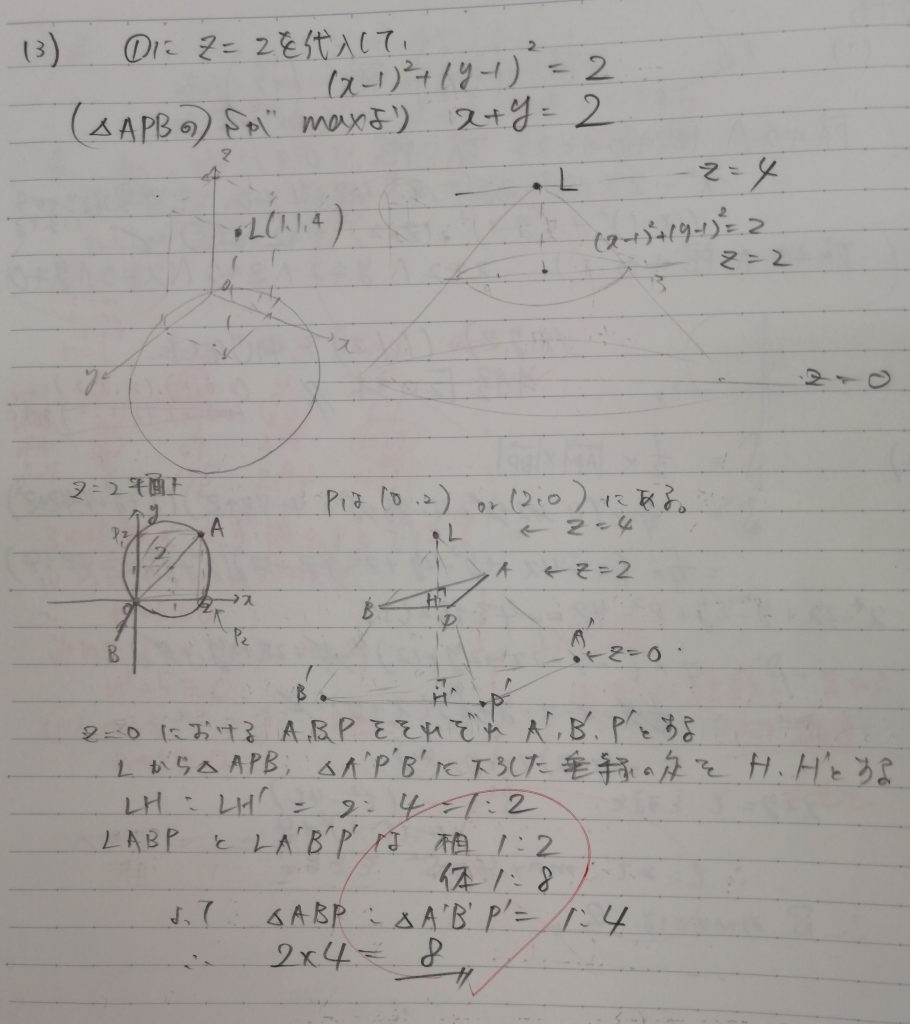 (3) ①に z=2を代入して,
(x-1)²+(y-1)²=2
(△APBの) Sが max より x+y=2
z
L(1,1,4)
0
x
y
L
z=4
(x-1)²+(y-1)²=2
z=2
B
z=0
z=2平面上
Pは(0,2) or (2,0)にある。
y
A
P₁
2
0
2
x
P₂
B
L
←z=4
A
←z=2
B
H
P
A'
←z=0
B'
H'
P'
z=0における A,B,Pをそれぞれ A',B',P'とする
Lから△APB, △A'P'B'に下ろした垂線の足を H,H'とする
LH:LH'=2:4=1:2
LABPとLA'B'P'は 相 1:2
体 1:8
よって △ABP:△A'B'P'=1:4
∴ 2×4=8